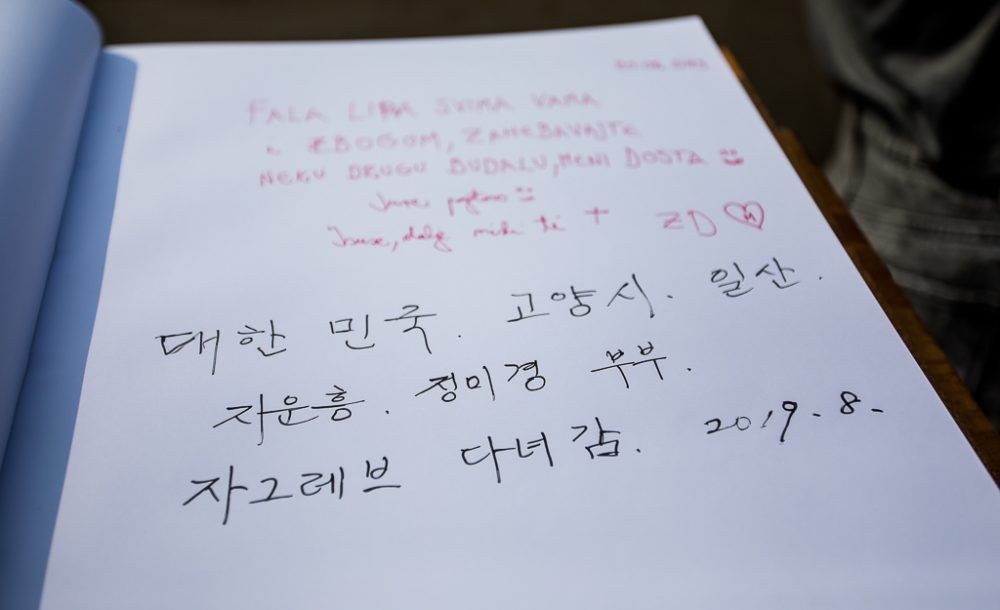 FALA LIPA SVIMA VAMA
I ZBOGOM, ZAHEBAVAJTE
NEKU DRUGU BUDALU, MENI DOSTA
+ ZD
대한 민국. 고양시. 일산.
자운흥. 정미경 부부.
자그레브 다녀감. 2019. 8.